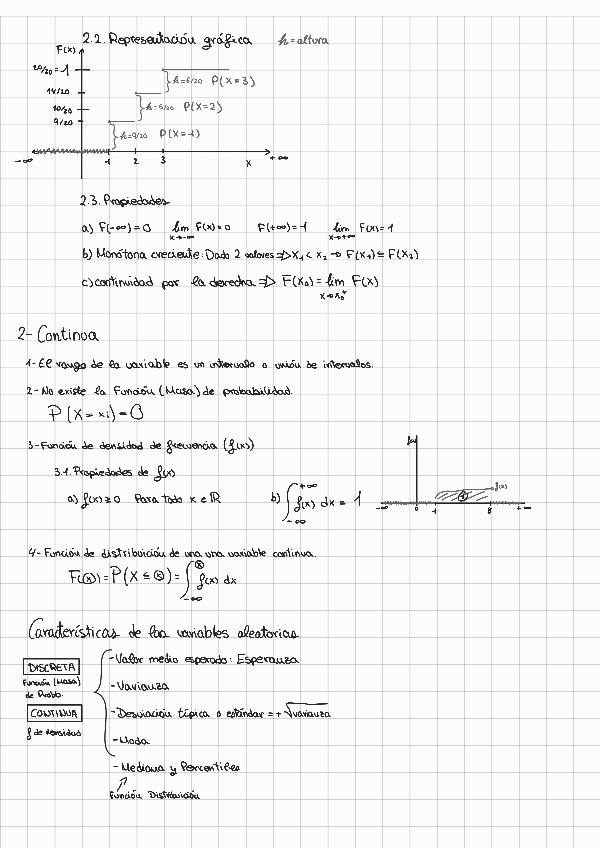 2.2. Representación gráfica h = altura
F(x)
20/20 = 1
14/20
10/20
9/20
h=6/20 P(X=3)
h=5/20 P(X=2)
h=9/20 P(X=1)
-∞ 1 2 3 x +∞
2.3. Propiedades
a) F(-∞)=0 lim F(x)=0 F(+∞)=1 lim F(x)=1
x→-∞ x→+∞
b) Monótona creciente: Dado 2 valores ⇒ x₁ < x₂ → F(x₁) ≤ F(x₂)
c) continuidad por la derecha ⇒ F(x₀) = lim F(x)
x→x₀⁺
2- Continua
1- El rango de la variable es un intervalo o unión de intervalos.
2- No existe la Función (Masa) de probabilidad.
P(X = xi) = 0
3- Función de densidad de frecuencia (f(x))
3.1. Propiedades de f(x)
a) f(x) ≥ 0 Para todo x ∈ ℝ b) ∫₋∞⁺∞ f(x) dx = 1
f(x)
-∞ 0 +∞
4- Función de distribución de una una variable continua.
F(x) = P(X ≤ x) = ∫₋∞ˣ f(x) dx
Características de las variables aleatorias
DISCRETA
Función (Masa)
de Prob.
CONTINUA
f de densidad
- Valor medio esperado: Esperanza
- Varianza
- Desviación típica o estándar = + √varianza
- Moda
- Mediana y Percentiles
Función Distribución